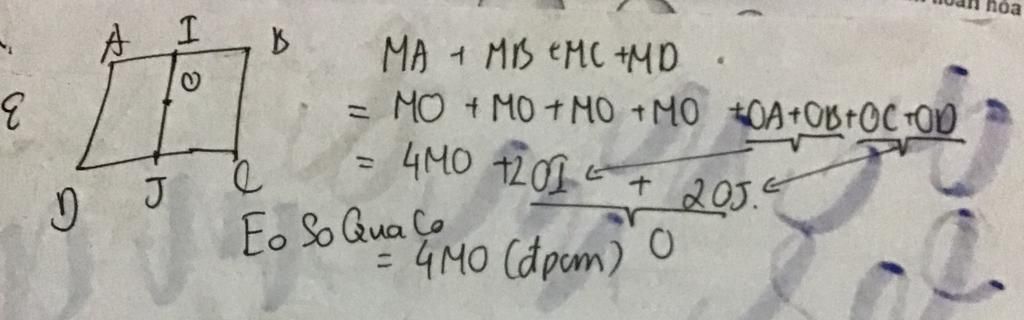 hóa
A I B
MA + MB + MC + MD
O
= MO + MO + MO + MO + OA + OB + OC + OD
= 4MO + 2OI + 2OJ.
D J C
Eo So Qua Co
O
= 4MO (đpcm)